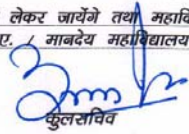 लेकर जायेंगे तथा महावि
ए. / मानदेय महाविद्यालय
कुलसचिव